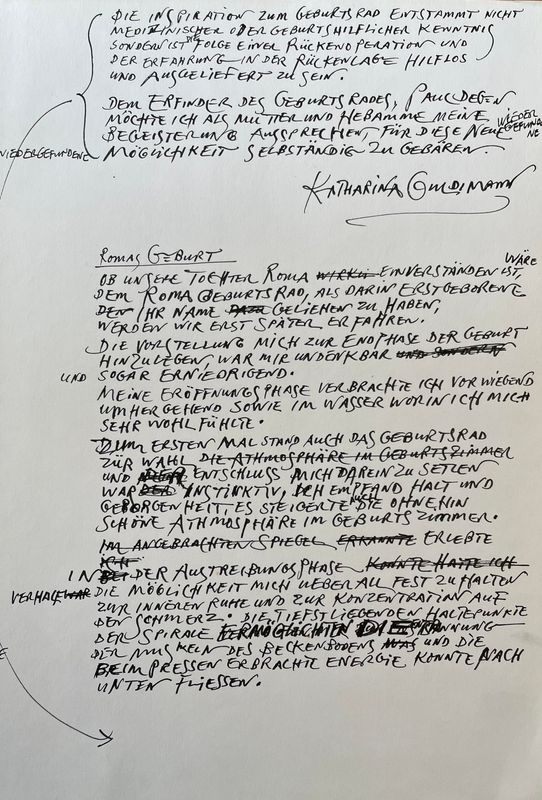 DIE INSPIRATION ZUM GEBURTSRAD ENTSTAMMT NICHT
MEDIZINISCHER ODER GEBURTSHILFLICHER KENNTNIS
SONDERN IST DIE FOLGE EINER RÜCKENOPERATION UND
DER ERFAHRUNG IN DER RÜCKENLAGE HILFLOS
UND AUSGELIEFERT ZU SEIN.
DEM ERFINDER DES GEBURTSRADES, PAUL DEGEN
MÖCHTE ICH ALS MUTTER UND HEBAMME MEINE
BEGEISTERUNG AUSSPRECHEN, FÜR DIESE NEUE WIEDER GEFUNDENE
WIEDERGEFUNDENE MÖGLICHKEIT SELBSTÄNDIG ZU GEBÄREN.
KATHARINA GULDIMANN
ROMAS GEBURT
OB UNSERE TOCHTER ROMA EINVERSTANDEN IST, WÄRE
DEM ROMA GEBURTSRAD, ALS DARIN ERSTGEBORENE
DEN IHR NAME DAZU GELIEHEN ZU HABEN,
WERDEN WIR ERST SPÄTER ERFAHREN.
DIE VORSTELLUNG MICH ZUR ENDPHASE DER GEBURT
HINZULEGEN, WAR MIR UNDENKBAR UND SONDERN
UND SOGAR ERNIEDRIGEND.
MEINE ERÖFFNUNGSPHASE VERBRACHTE ICH VORWIEGEND
UMHERGEHEND SOWIE IM WASSER WORIN ICH MICH
SEHR WOHL FÜHLTE.
ZUM ERSTEN MAL STAND AUCH DAS GEBURTSRAD
ZUR WAHL DIE ATHMOSPHÄRE IM GEBURTSZIMMER
UND DER ENTSCHLUSS MICH DAREIN ZU SETZEN
WAR DER INSTINKTIV, ICH EMPFAND HALT UND
GEBORGENHEIT, ES STEIGERTE AUCH DIE OHNEHIN
SCHÖNE ATHMOSPHÄRE IM GEBURTSZIMMER.
IM ANGEBRACHTEN SPIEGEL ERKANNTE ERLEBTE
ICH
IN BEI DER AUSTREIBUNGSPHASE KONNTE HATTE ICH
VERHALF WAR DIE MÖGLICHKEIT MICH UEBERALL FEST ZU HALTEN
ZUR INNEREN RUHE UND ZUR KONZENTRATION AUF
DEN SCHMERZ. DIE TIEFSTLIEGENDEN HALTEPUNKTE
DER SPIRALE ERMÖGLICHTEN DIE ENTSPANNUNG
DER MUSKELN DES BECKENBODENS UND DIE
BEIM PRESSEN ERBRACHTE ENERGIE KONNTE NACH
UNTEN FLIESSEN.